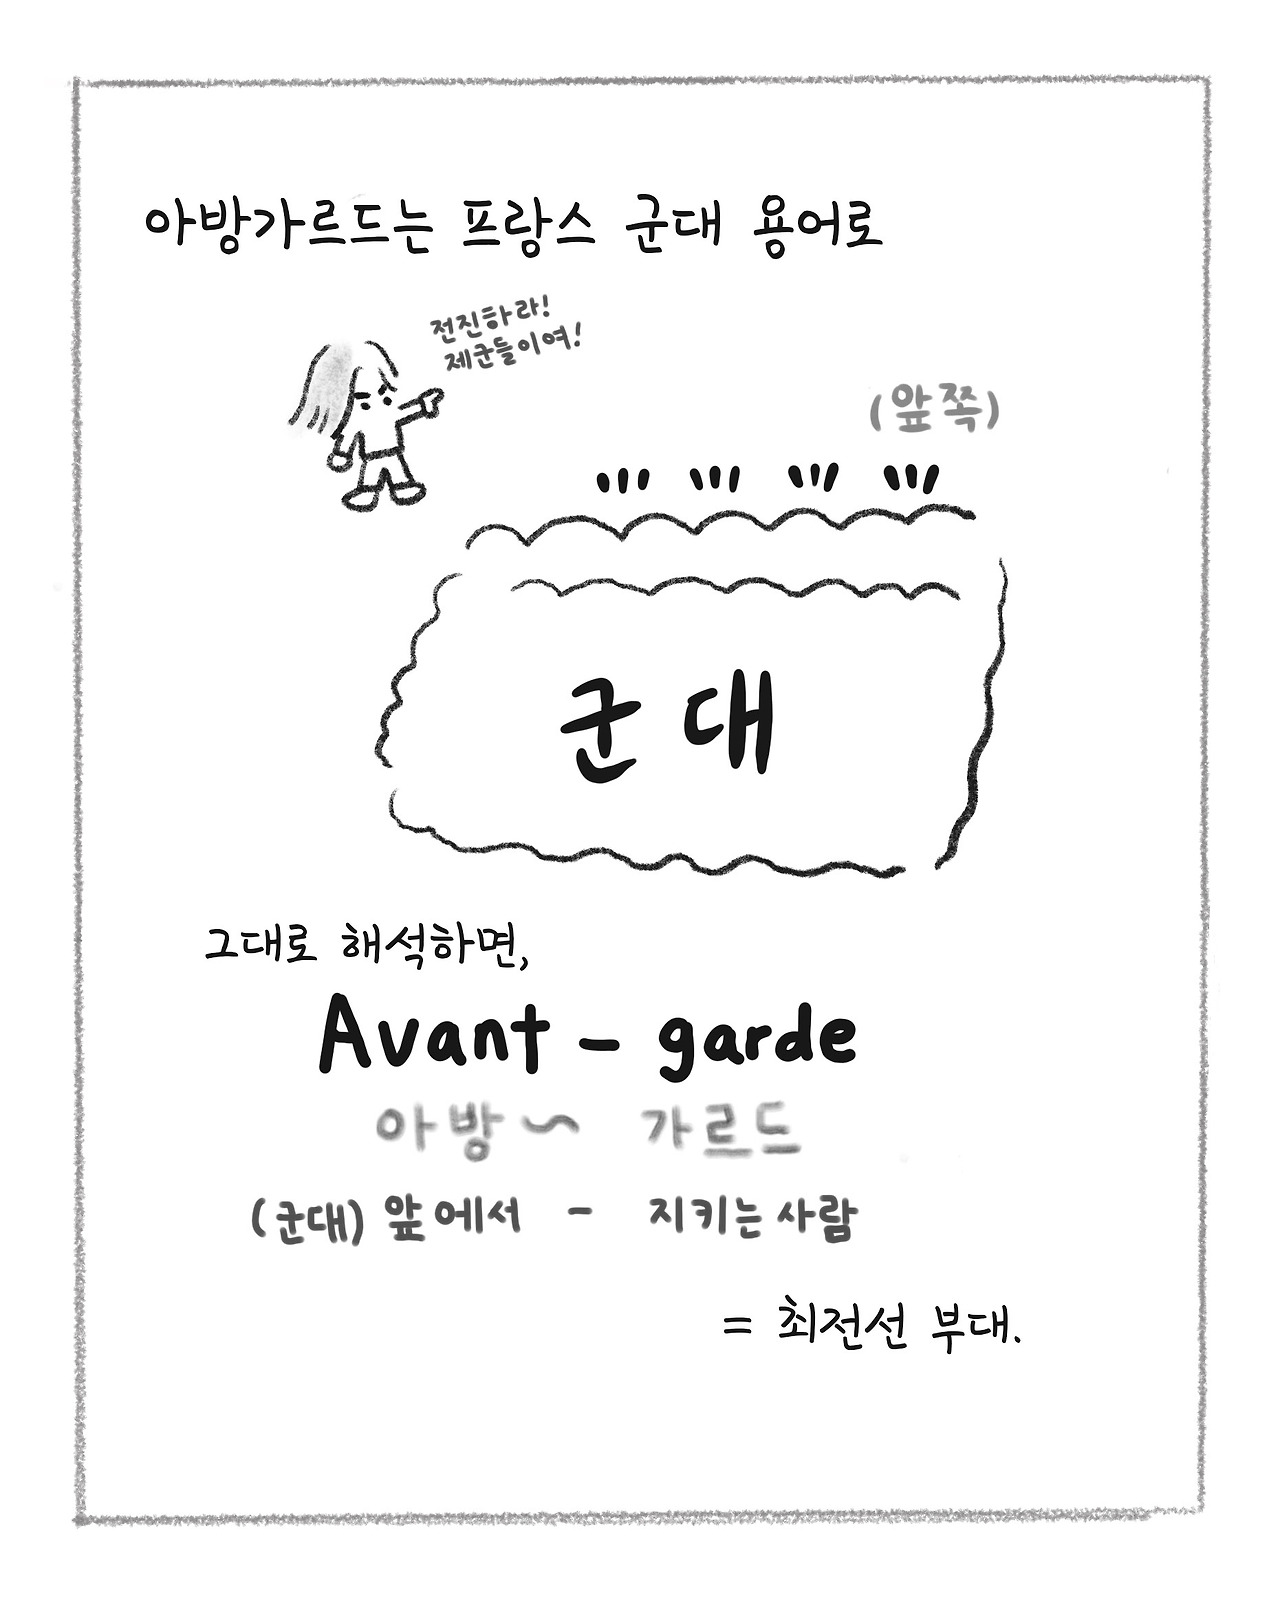 아방가르드는 프랑스 군대 용어로
전진하라!
제군들이여!
(앞쪽)
군대
그대로 해석하면,
Avant - garde
아방~ 가르드
(군대) 앞에서 - 지키는 사람
= 최전선 부대.